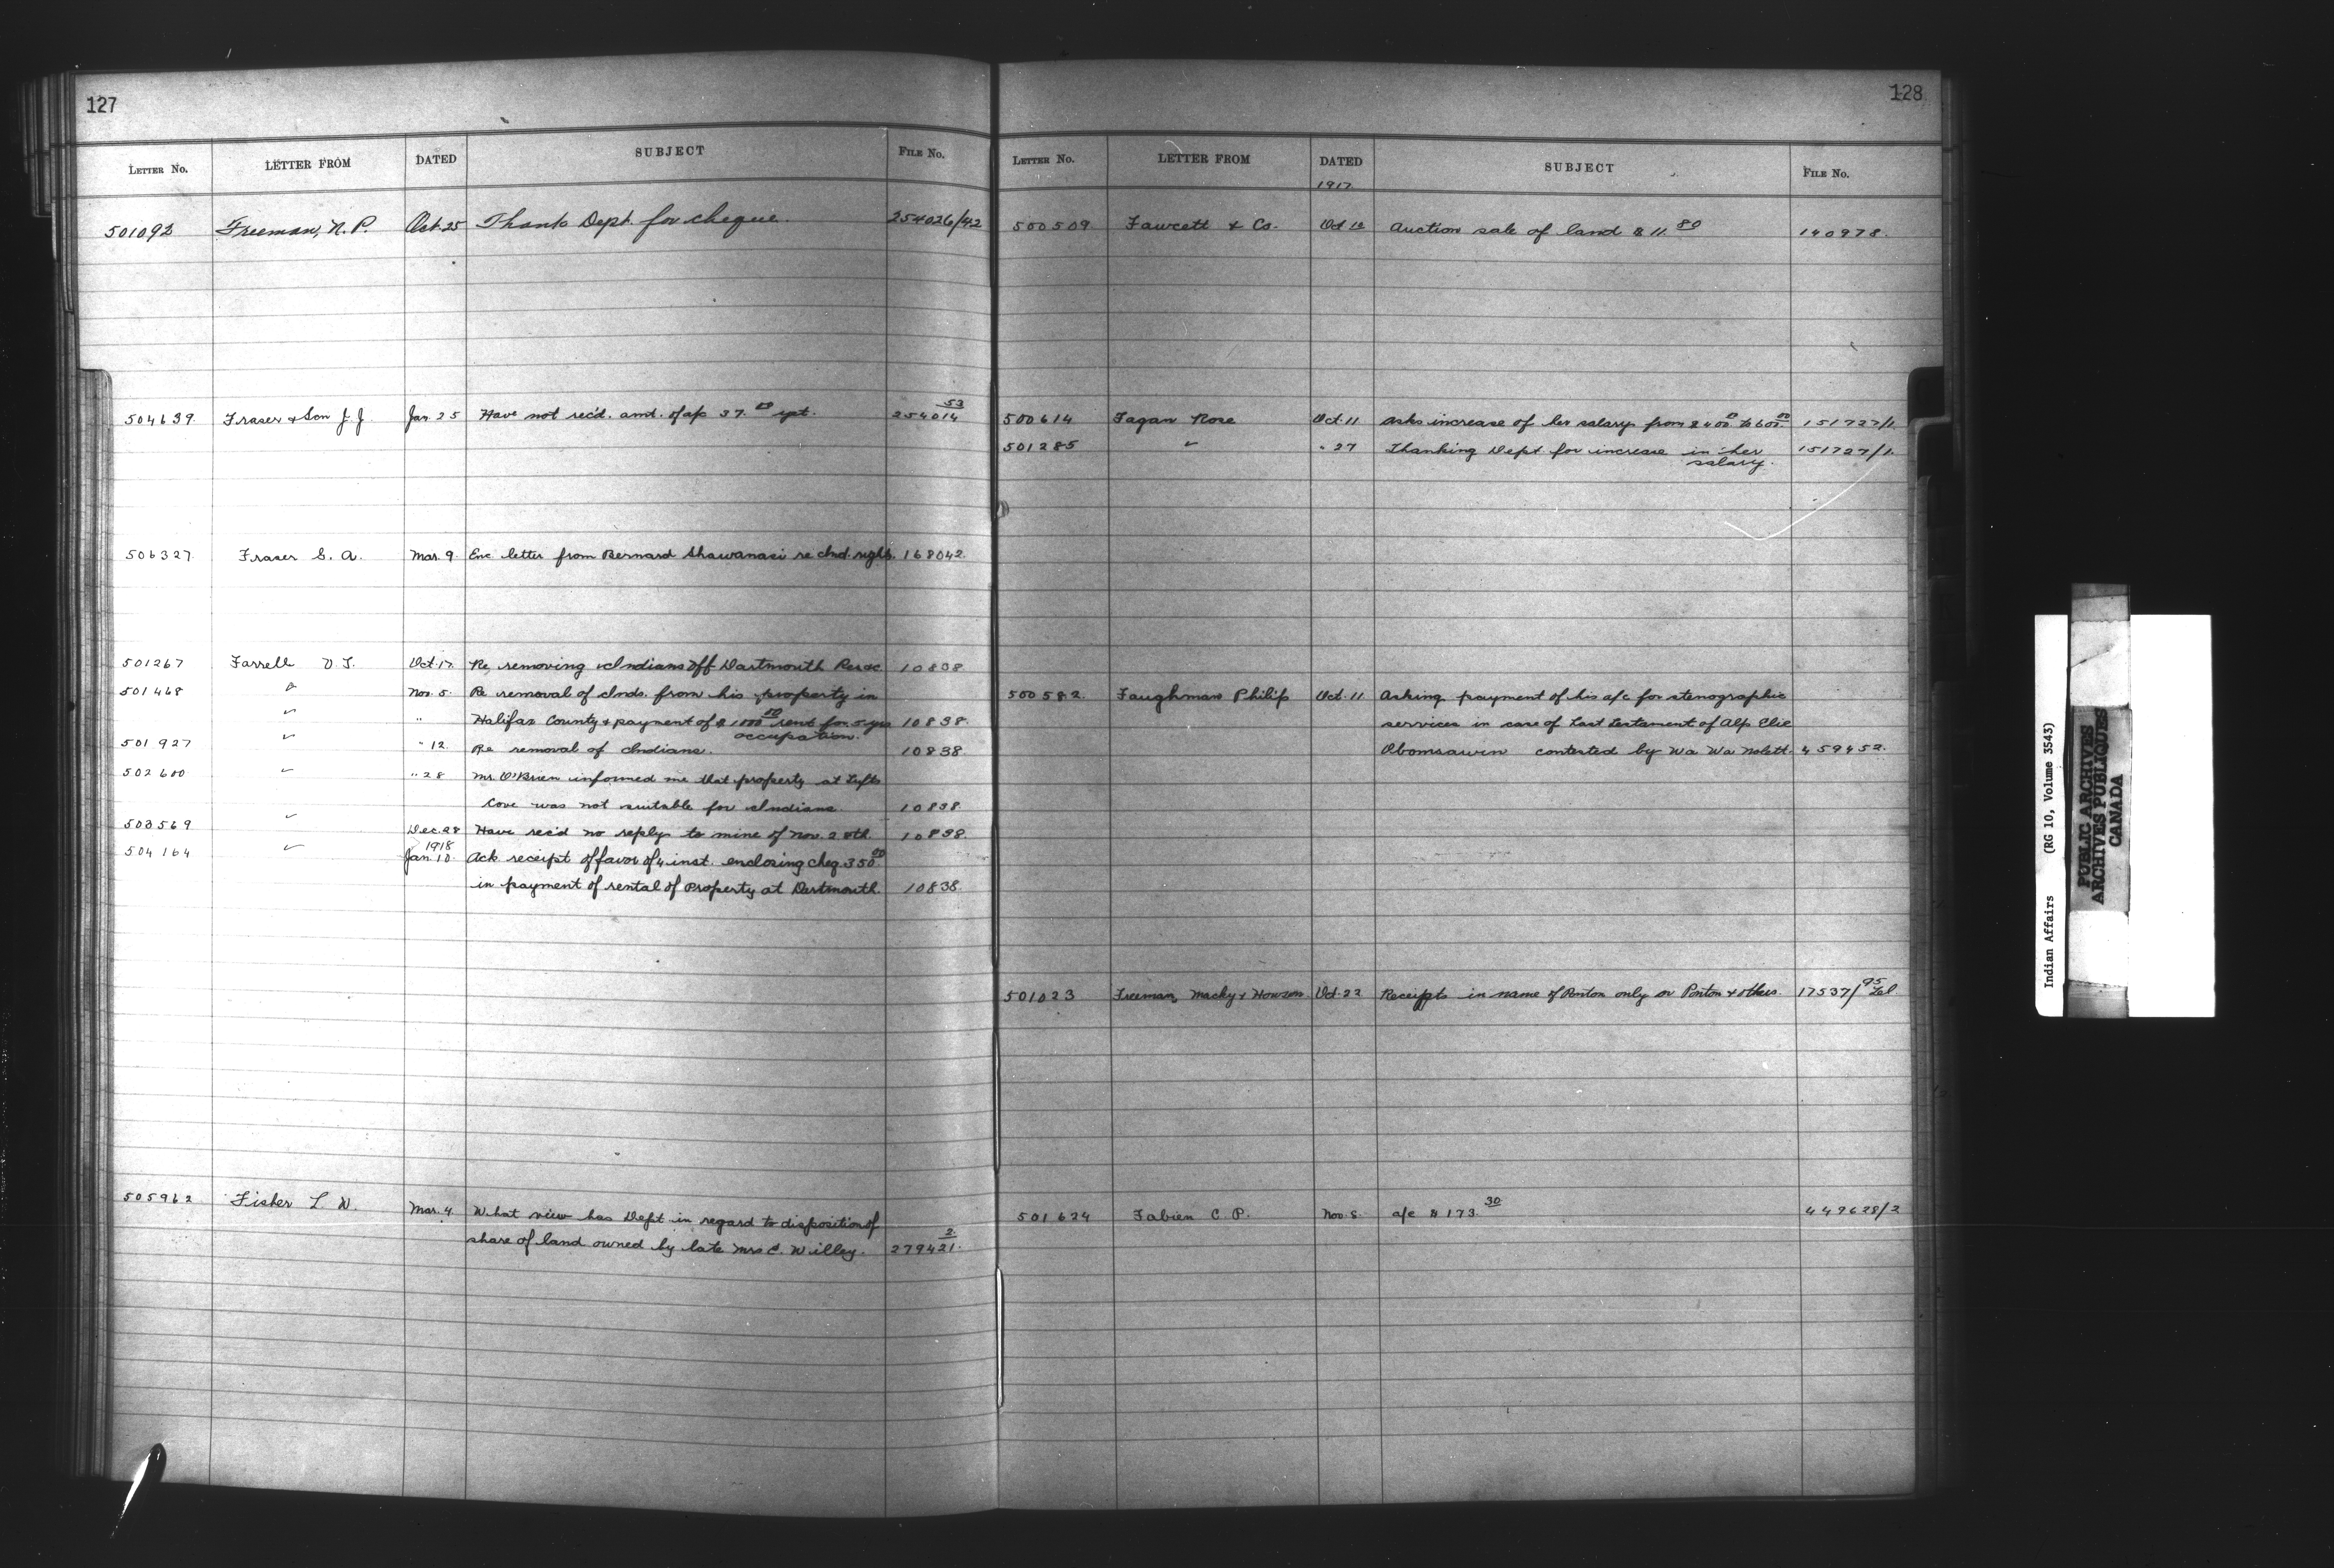 127
LETTER No. LETTER FROM DATED SUBJECT FILE No.
501092 Freeman, N. P. Oct. 25 Thank Dept. for cheque. 254026/42
504639 Fraser & Son J. J. Jan. 25 Have not rec'd. amt. of a/c 37. yet. 254014 53
506327 Fraser S. A. Mar. 9 Enc letter from Bernard Shawanasi re Ind. rights. 168042.
501267 Farrell V. J. Oct. 17 Re, removing Indians off Dartmouth Resve 10838
501468 " Nov. 5. Re removal of Inds. from his property in
" " Halifax County & payment of $1000 00 rent for 5 yrs 10838.
occupation.
501927 " " 12. Re removal of Indians. 10838.
502600 " " 28 Mr. O'Brien informed me that property at Tufts
Cove was not suitable for Indians. 10838
503569 " Dec. 28 Have rec'd no reply to mine of Nov. 28th 10838.
1918
504164 " Jan. 10. Ack receipt of favor of 4 inst. enclosing cheq. 350 00
in payment of rental of Property at Dartmouth. 10838.
505962 Fisher L. W. Mar. 4. What view has Dept in regard to disposition of
share of land owned by late Mrs C. Willey. 279421. 2
128
LETTER No. LETTER FROM DATED SUBJECT FILE No.
1917
500509 Fawcett & Co. Oct 10 Auction sale of land $11. 80 140978.
500614 Fagan Rose Oct. 11 Asks increase of her salary from $400 00 to 600. 00 151727/1.
501285 " " 27 Thanking Dept for increase in her 151727/1.
salary.
500582. Faughman Philip Oct. 11 Asking payment of his a/c for stenographic
services in case of Last Testament of Alp. Elie
Obomsawin contested by Wa Wa Nolett. 459452.
501023 Freeman, Macky & Howson Oct. 22 Receipts in name of Ponton only or Ponton & others. 17537/95
501624 Fabien C. P. Nov. 8. a/c $173. 30 449628/2
Indian Affairs (RG 10, Volume 3543)
PUBLIC ARCHIVES
ARCHIVES PUBLIQUES
CANADA